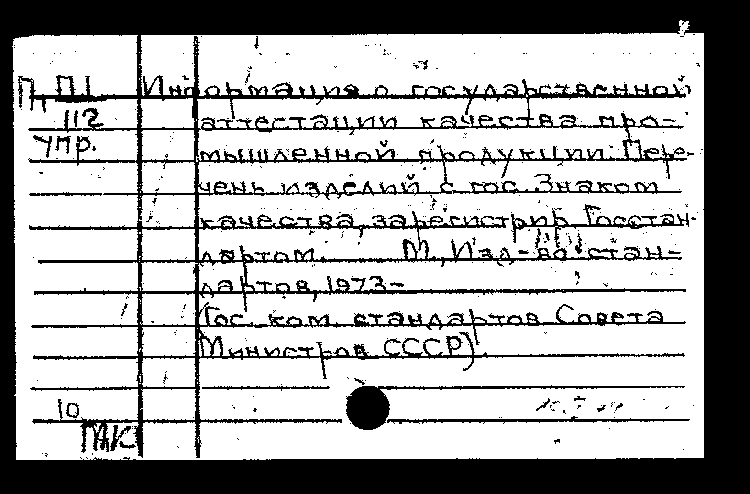 П, П1 Информация о государственной
112 аттестации качества про-
упр. мышленной продукции. Пере-
чень изделий с гос. Знаком
качества, зарегистрир. Госстан-
дартом. М., Изд-во стан-
дартов, 1973-
(Гос. ком. стандартов Совета
Министров СССР).
10